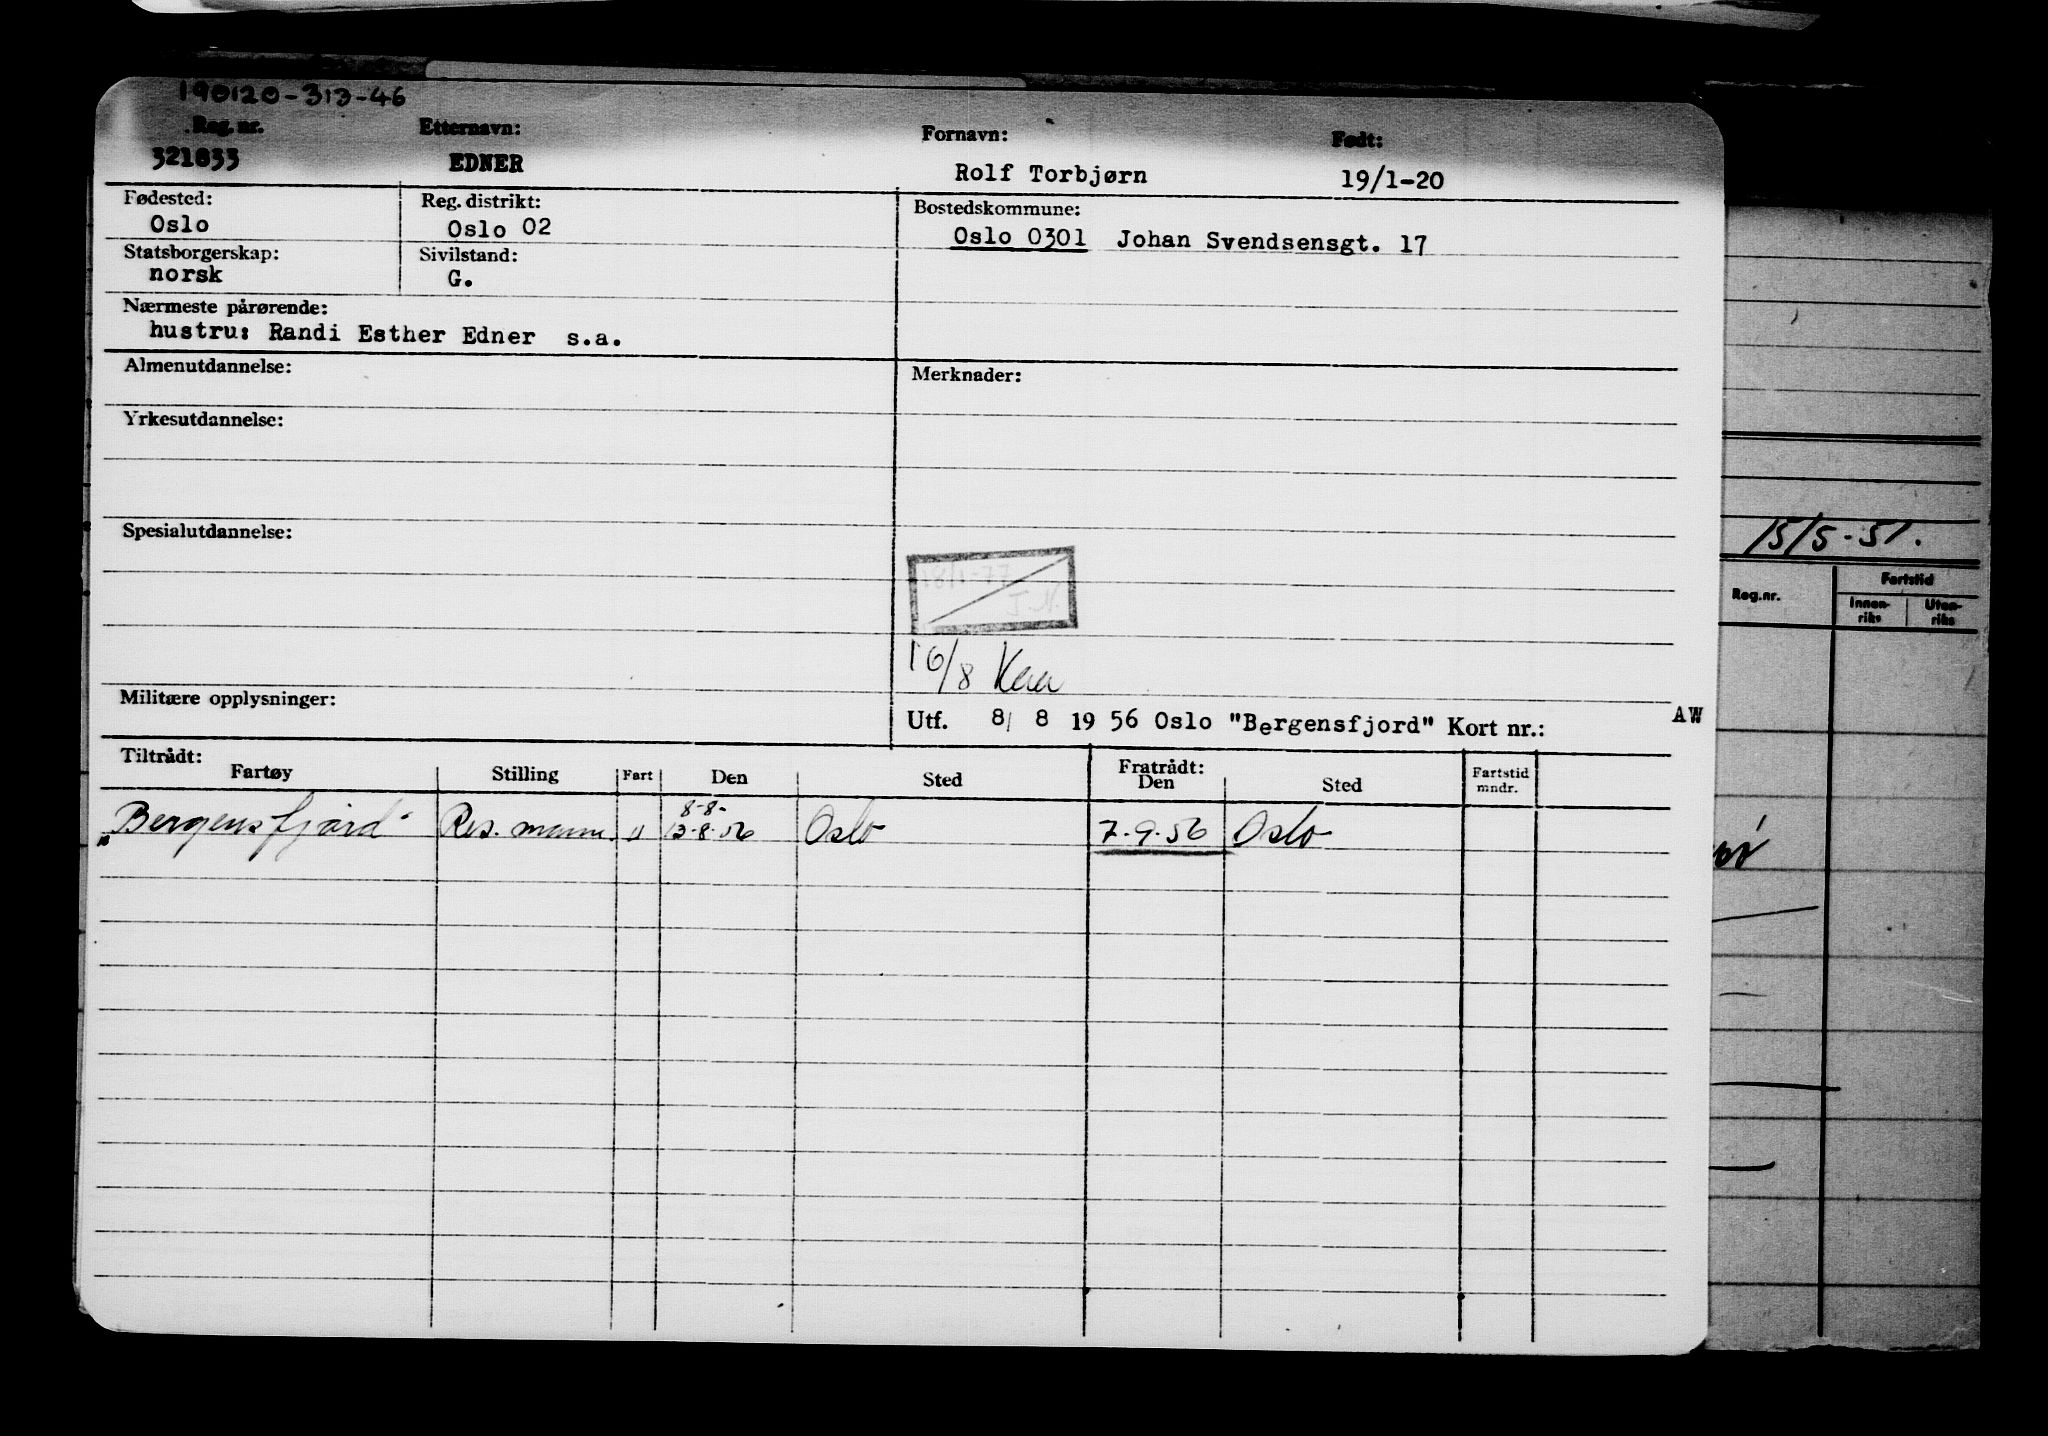 190120-313-46
Reg. nr. Etternavn: Fornavn: Født:
321833 EDNER Rolf Torbjørn 19/1-20
Fødested: Reg. distrikt: Bostedskommune:
Oslo Oslo 02 Oslo 0301 Johan Svendsensgt. 17
Statsborgerskap: Sivilstand:
norsk G.
Nærmeste pårørende:
hustru: Randi Esther Edner s.a.
Almenutdannelse: Merknader:
Yrkesutdannelse:
Spesialutdannelse:
18/1-77
J.N.
16/8
Militære opplysninger:
Utf. 8/ 8 19 56 Oslo "Bergensfjord" Kort nr.: AW
Tiltrådt: Fratrådt:
Fartøy Stilling Fart Den Sted Den Sted Fartstid mndr.
8-8-
"Bergensfjord" Res. mann u 13-8-56 Oslo 7-9-56 Oslo
15/5-51.
Reg.nr. Fartstid
Innen-riks Uten-riks